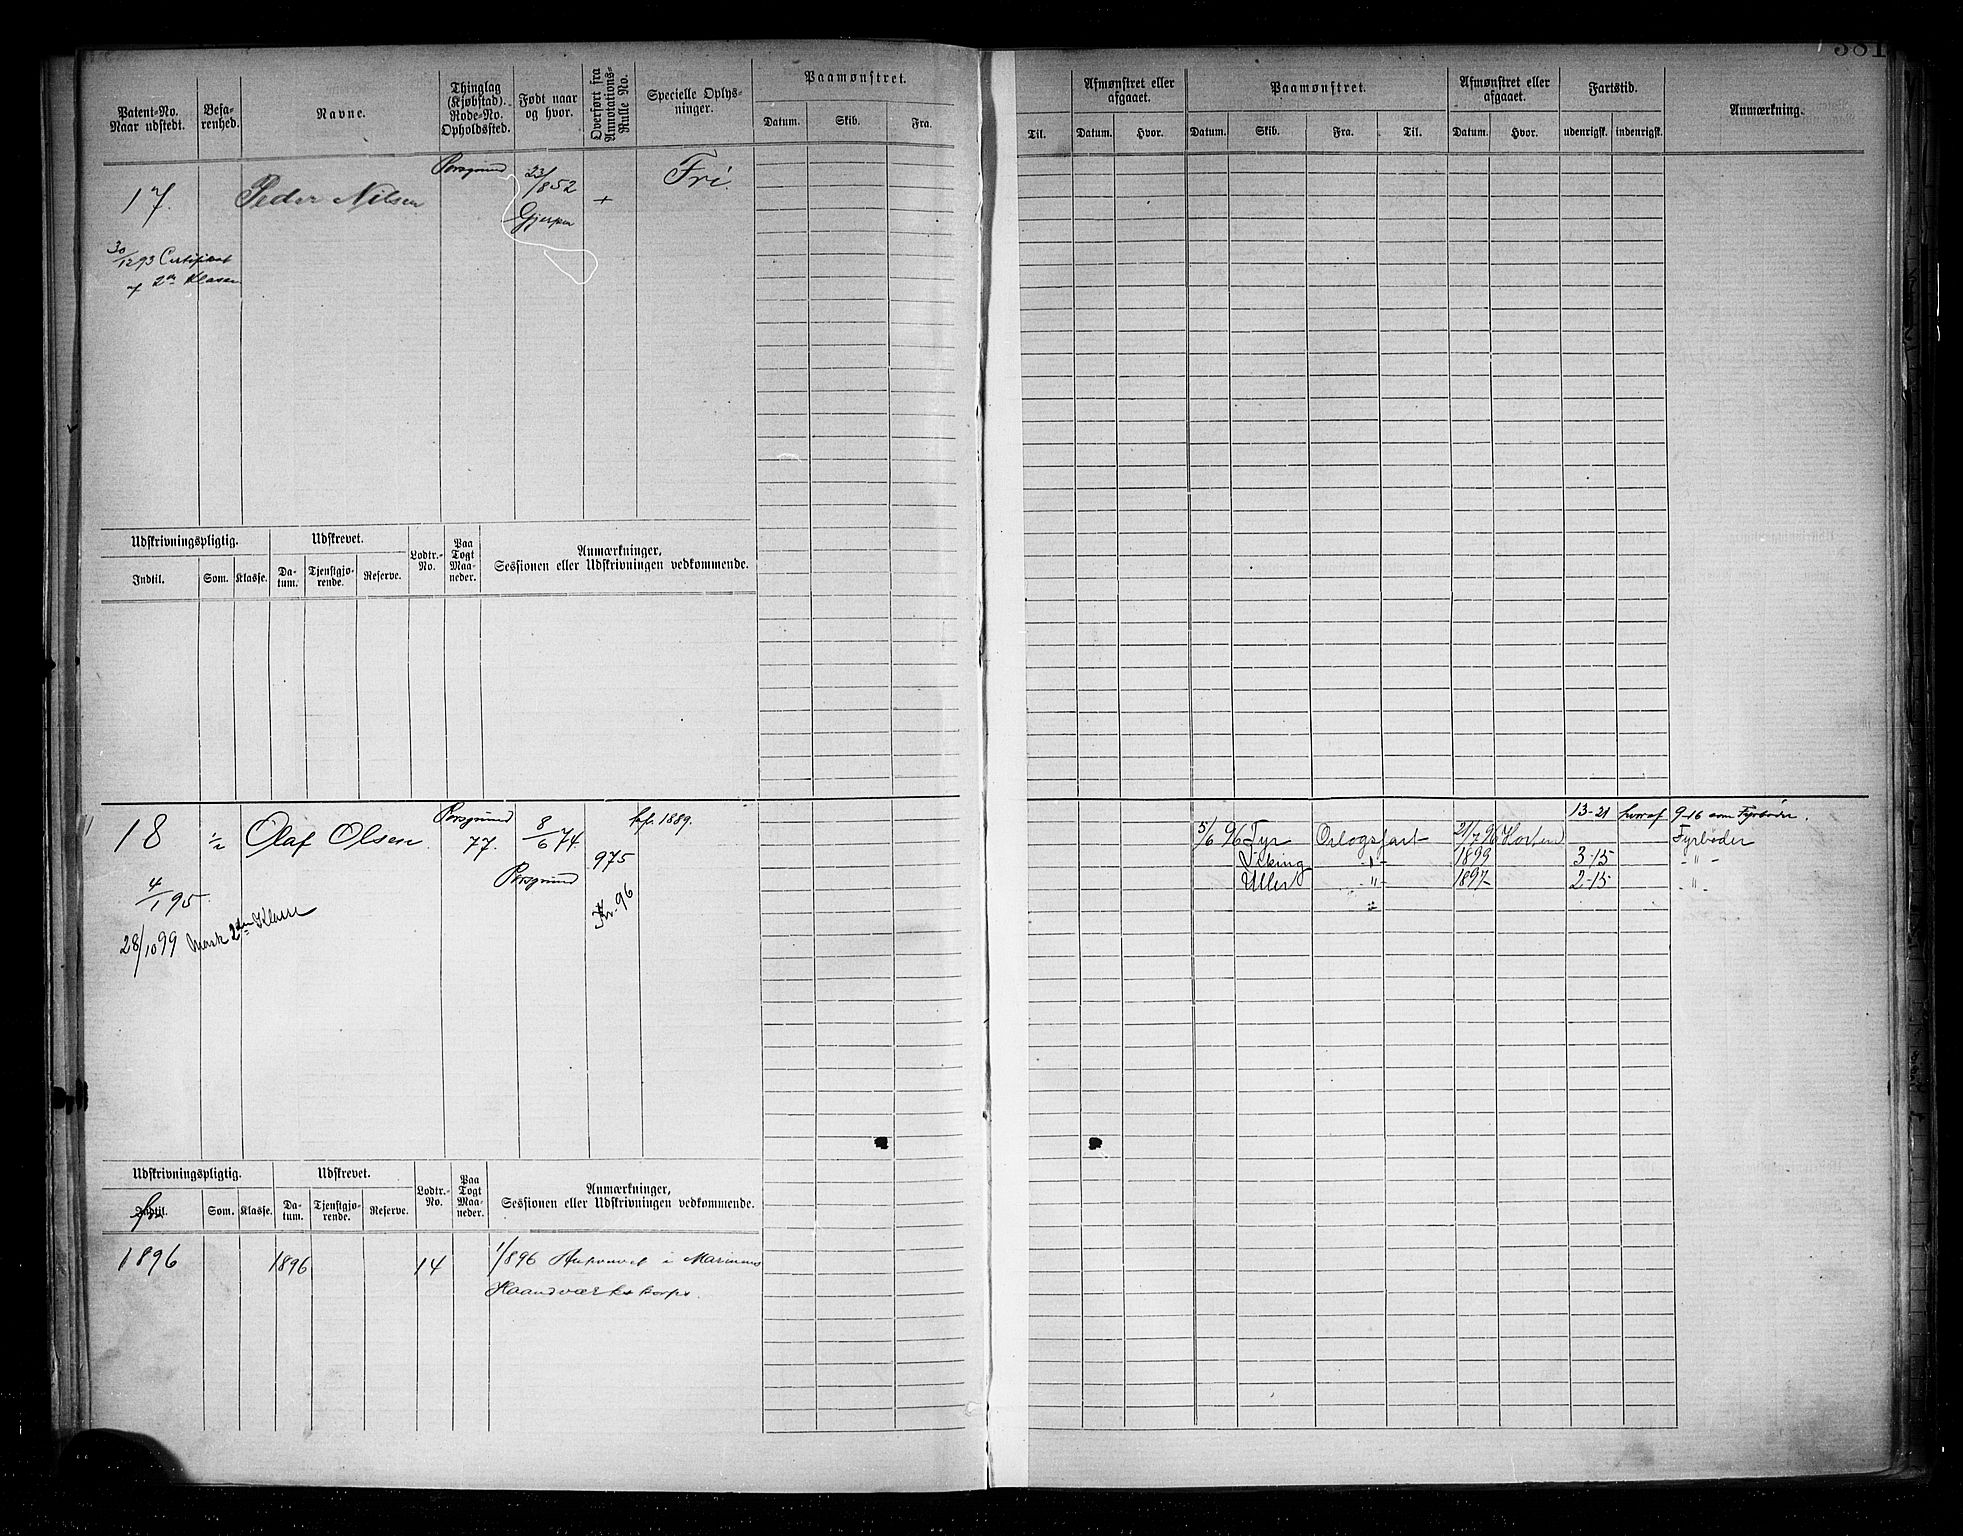 381
Patent-No. Naar udstedt.
Befarenhed.
Navne.
Thinglag (Kjøbstad). Rode-No. Opholdssted.
Født naar og hvor.
Overført fra Annotations-Rulle No.
Specielle Oplysninger.
Paamønstret.
Datum. Skib. Fra.
Til.
Afmønstret eller afgaaet.
Datum. Hvor.
Paamønstret.
Datum. Skib. Fra. Til.
Afmønstret eller afgaaet.
Datum. Hvor.
Fartstid.
udenrigsk. indenrigsk.
Anmærkning.
17. Peder Nilsen Porsgrund 23/1852 + Fri.
Gjerpen
30/12 93 Certifikat
af 2den Klasse
Udskrivningspligtig. Udskrevet. Lodtr.-No. Paa Togt Maaneder. Anmærkninger, Sessionen eller Udskrivningen vedkommende.
Indtil. Som. Klasse. Datum. Tjenstgjørende. Reserve.
18 1/2 Olaf Olsen. Porsgrund 77. 8/6 74 975 1889.
Porsgrund
4/1 95.
96
28/10 99 Mask 2den Klasse
13-21 hvoraf 9-16 som Fyrbøder.
5/6 96 Tyr Orlogsfart 21/7 96 Horten Fyrbøder
Viking -"- 1899 3-15 -"-
Uller -"- 1897 2-15 -"-
Udskrivningspligtig. Udskrevet. Lodtr.-No. Paa Togt Maaneder. Anmærkninger, Sessionen eller Udskrivningen vedkommende.
Indtil. Som. Klasse. Datum. Tjenstgjørende. Reserve.
fra
1896 1896 14 1/896 i Marinens
Haandværkskorps.